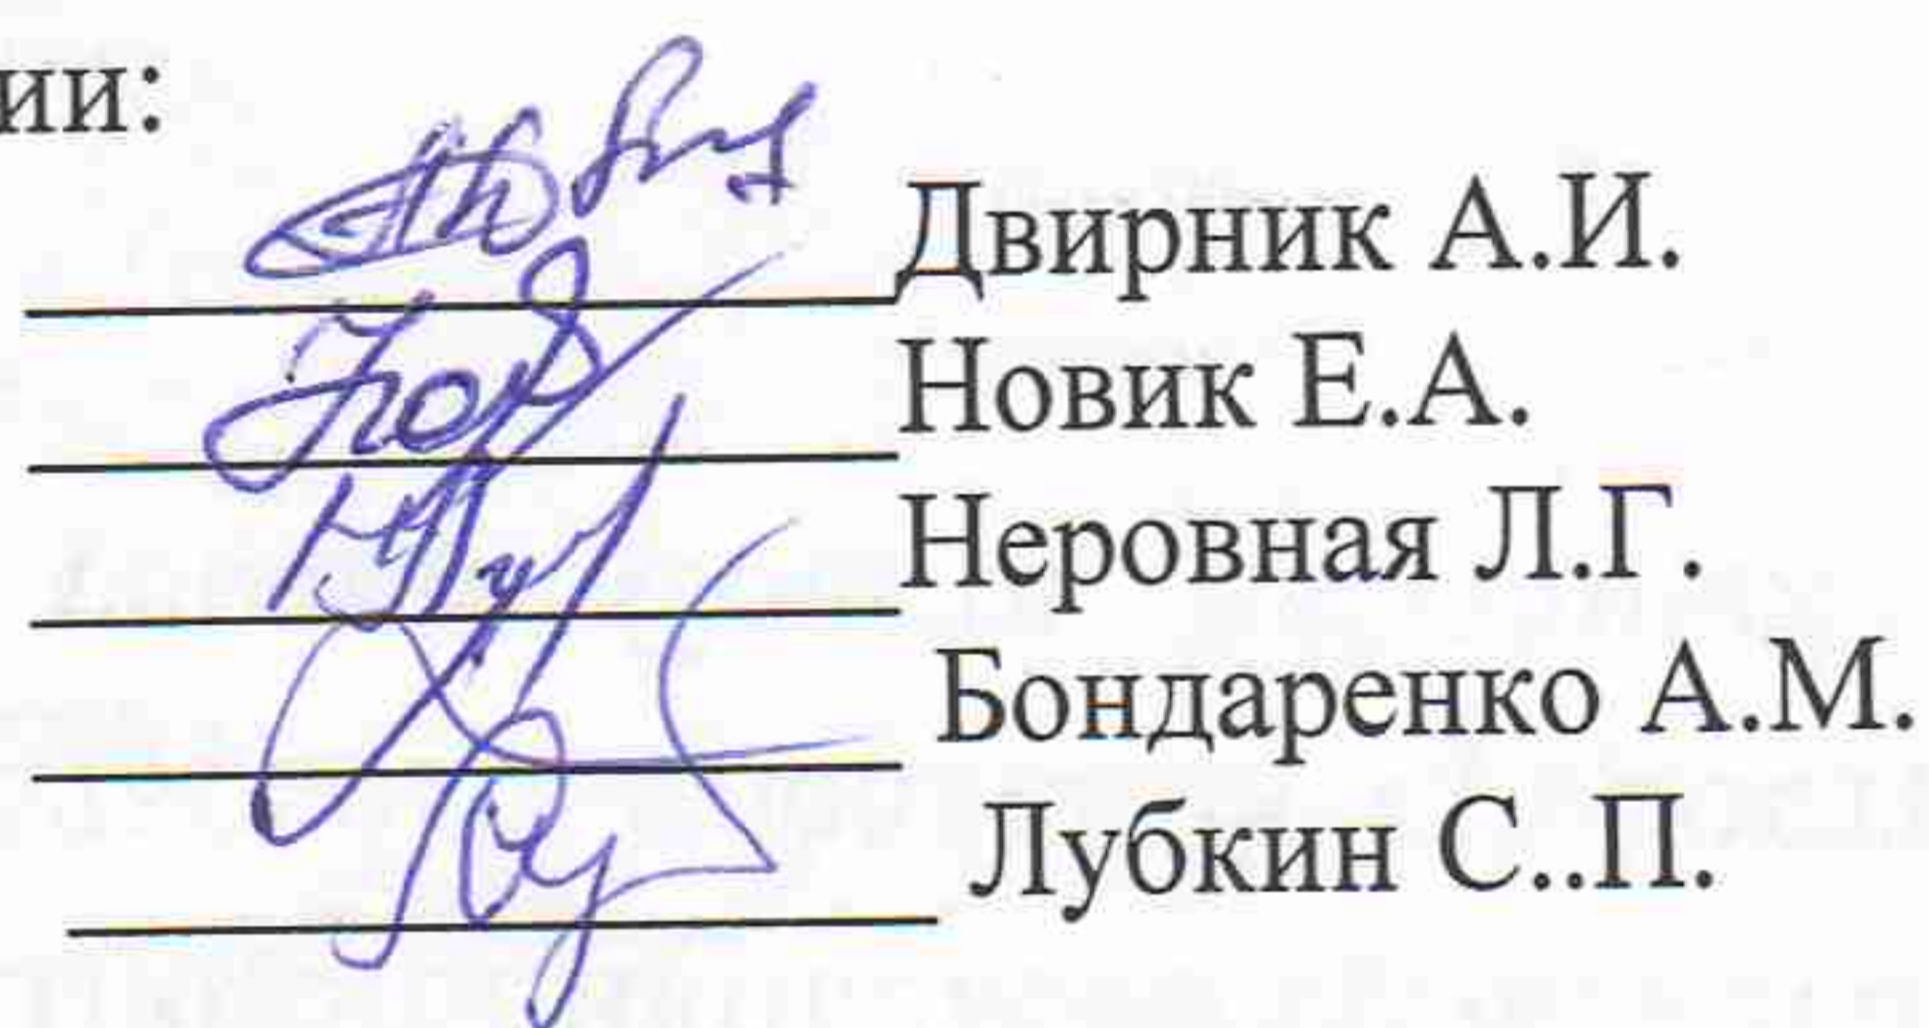 ии:
Двирник А.И.
Новик Е.А.
Неровная Л.Г.
Бондаренко А.М.
Лубкин С..П.